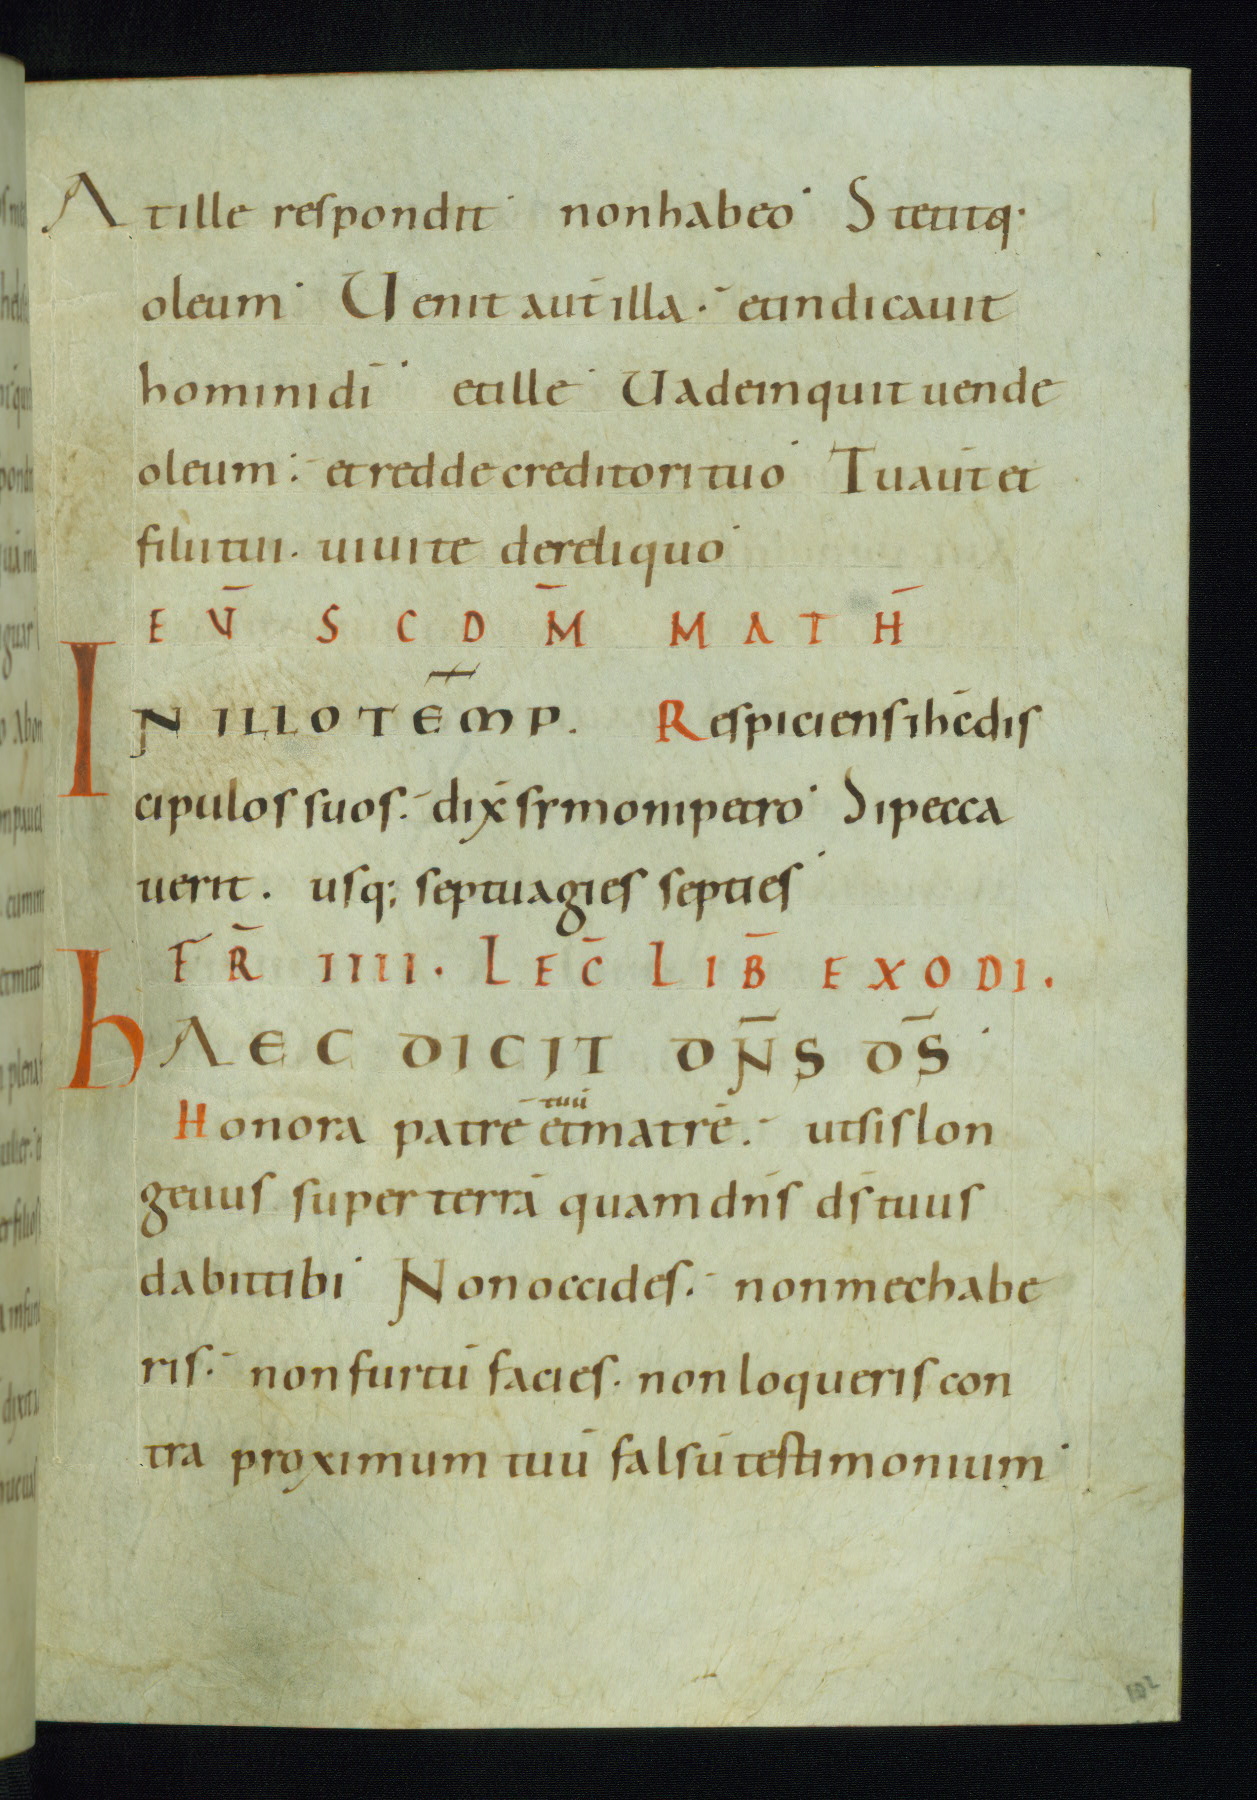 At ille respondit non habeo Stetitq·
oleum Uenit aut̄ illa. et indicauit
homini dī et ille Uade inquit uende
oleum. et redde creditori tuo Tu aut̄ et
filii tui. uiuite de reliquo
EṼ SCDM̄ MATH̄
IN ILLO TEMP. Respiciens ihc̄ dis
cipulos suos. dix̄ symoni petro Si pecca
uerit. usq; septuagies septies
FR̄ IIII. LEC̄ LIB̄ EXODI.
hAEC DICIT DN̄S DS̄
tuū
Honora patrē et matrē. ut sis lon
geuus super terrā quam dn̄s ds̄ tuus
dabit tibi Non occides. non mechabe
ris. non furtū facies. non loqueris con
tra proximum tuū falsū testimonium
102